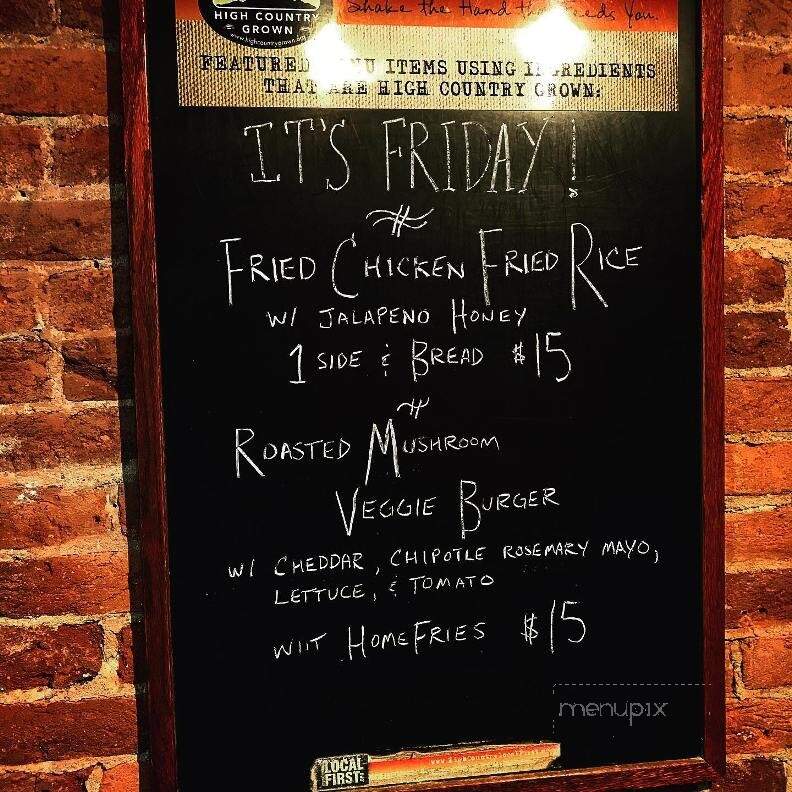 HIGH COUNTRY
GROWN
www.highcountrygrown.org
Shake the Hand that Feeds You.
FEATURED MENU ITEMS USING INGREDIENTS
THAT ARE HIGH COUNTRY GROWN:
IT'S FRIDAY!
FRIED CHICKEN FRIED RICE
W/ JALAPENO HONEY
1 SIDE & BREAD $15
ROASTED MUSHROOM
VEGGIE BURGER
W/ CHEDDAR, CHIPOTLE ROSEMARY MAYO,
LETTUCE, & TOMATO
WIIT HOMEFRIES $15
menupix
LOCAL
FIRST